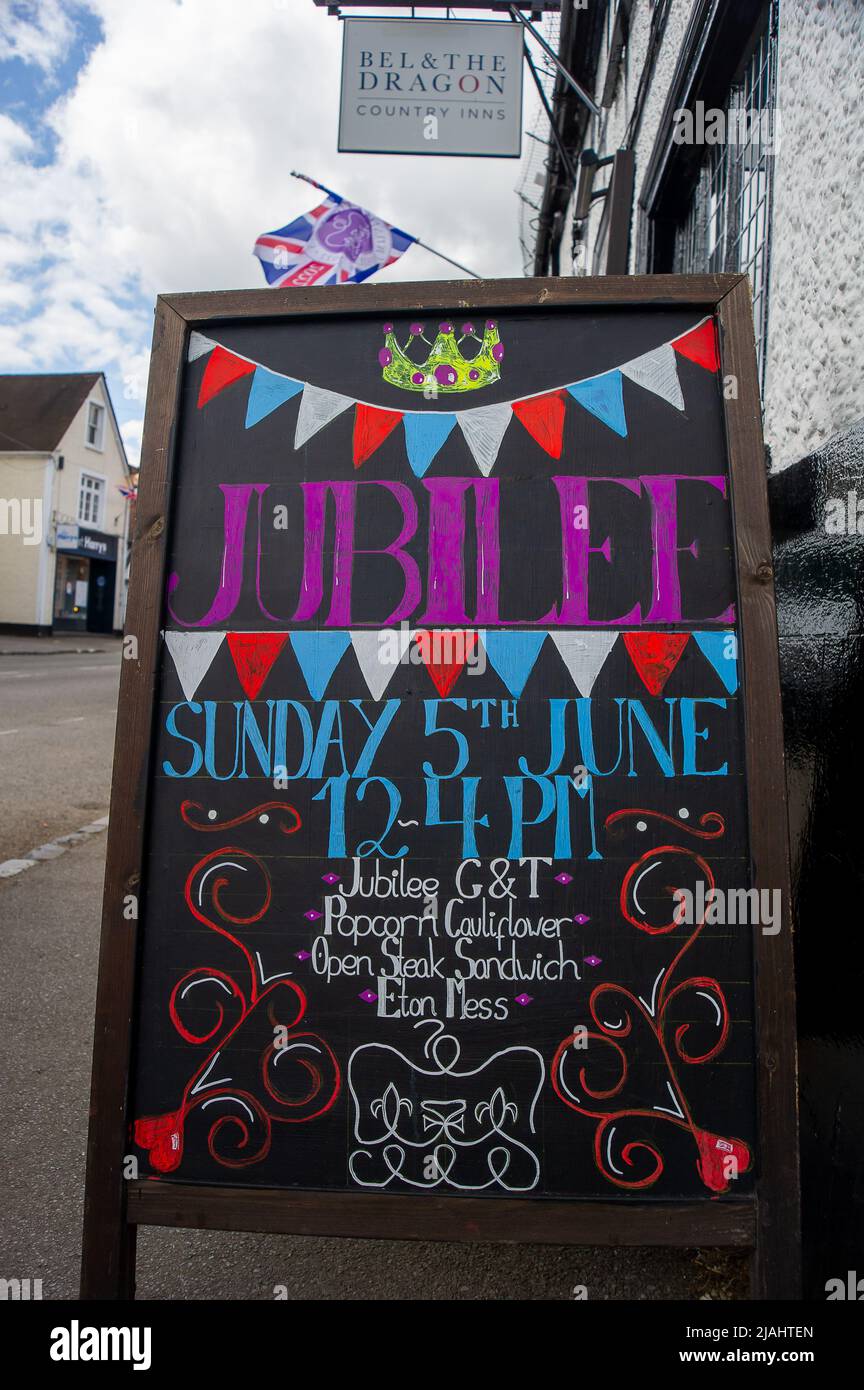 BEL & THE
DRAGON
COUNTRY INNS
JUBILEE
SUNDAY 5TH JUNE
12~4PM
Jubilee G & T
Popcorn Cauliflower
Open Steak Sandwich
Eton Mess
Harry's
alamy
alamy
Image ID: 2JAHTEN
www.alamy.com